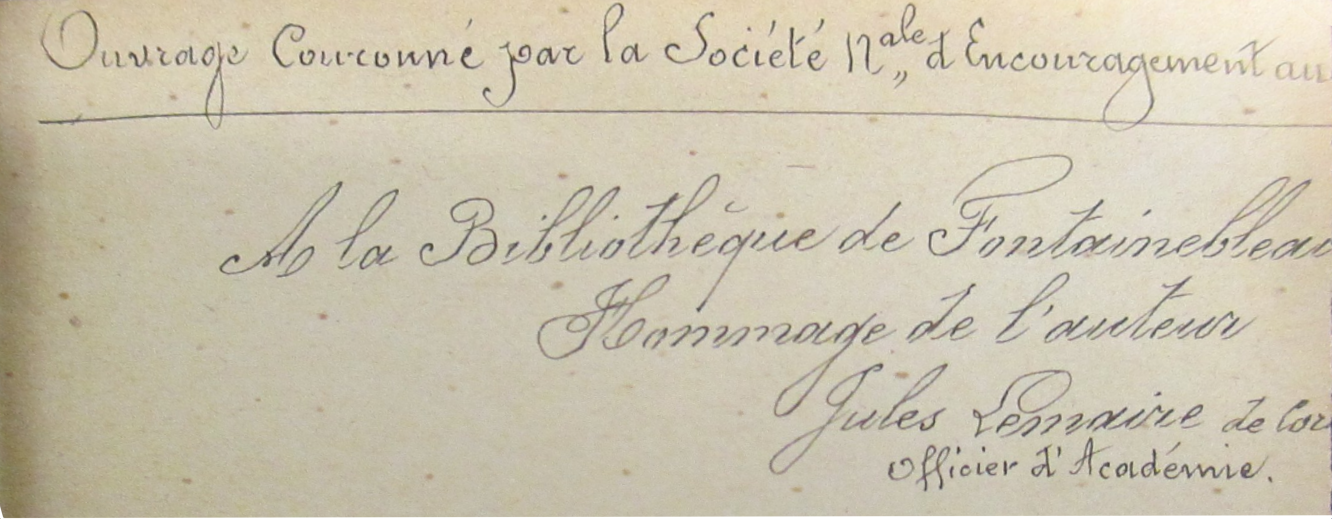 Ouvrage Couronné par la Société N^ale d'Encouragement au
A la Bibliothèque de Fontainebleau
Hommage de l'auteur
Jules Lemaire de Cor
Officier d'Académie.